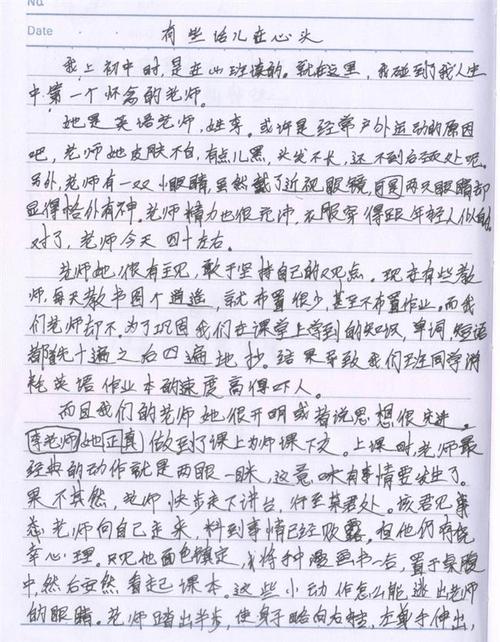 No.
Date
有些话儿在心头
我上初中时,是在山班读的。就在这里,我碰到了我人生
中第一个怀念的老师。
她是英语老师,姓李。或许是经常户外运动的原因
吧,老师她皮肤不白,有点儿黑,头发不长,还不到后颈处呢。
另外,老师有一双小眼睛,虽然戴了近视眼镜,但两只眼睛却
显得格外有神。老师精力也很充沛,衣服穿得跟年轻人似的
对了,老师今天四十左右。
老师她很有主见,敢于坚持自己的观点。现在有些教
师,每天教书图个逍遥,就布置很少,甚至不布置作业。而我
们老师却不。为了巩固我们在课堂上学到的知识,单词,短语
都是十遍之后四遍地抄。结果导致我们班同学消
耗英语作业本的速度高得吓人。
而且我们的老师她很开明或者说思想很先进。
李老师她真正做到了课上为师课下友。上课时,老师最
经典的动作就是两眼一眯,这意味有事情要发生了。
果不其然,老师快步走下讲台,行至某君处。该君见
老师向自己走来,料到事情已经败露。但他仍有侥
幸心理。只见他面色镇定,将手中漫画书一合,置于桌腹
中,然后安然看起课本。这些小动作怎么能逃出老师
的眼睛。老师踏出半步,使身子略向右,左单手伸出,